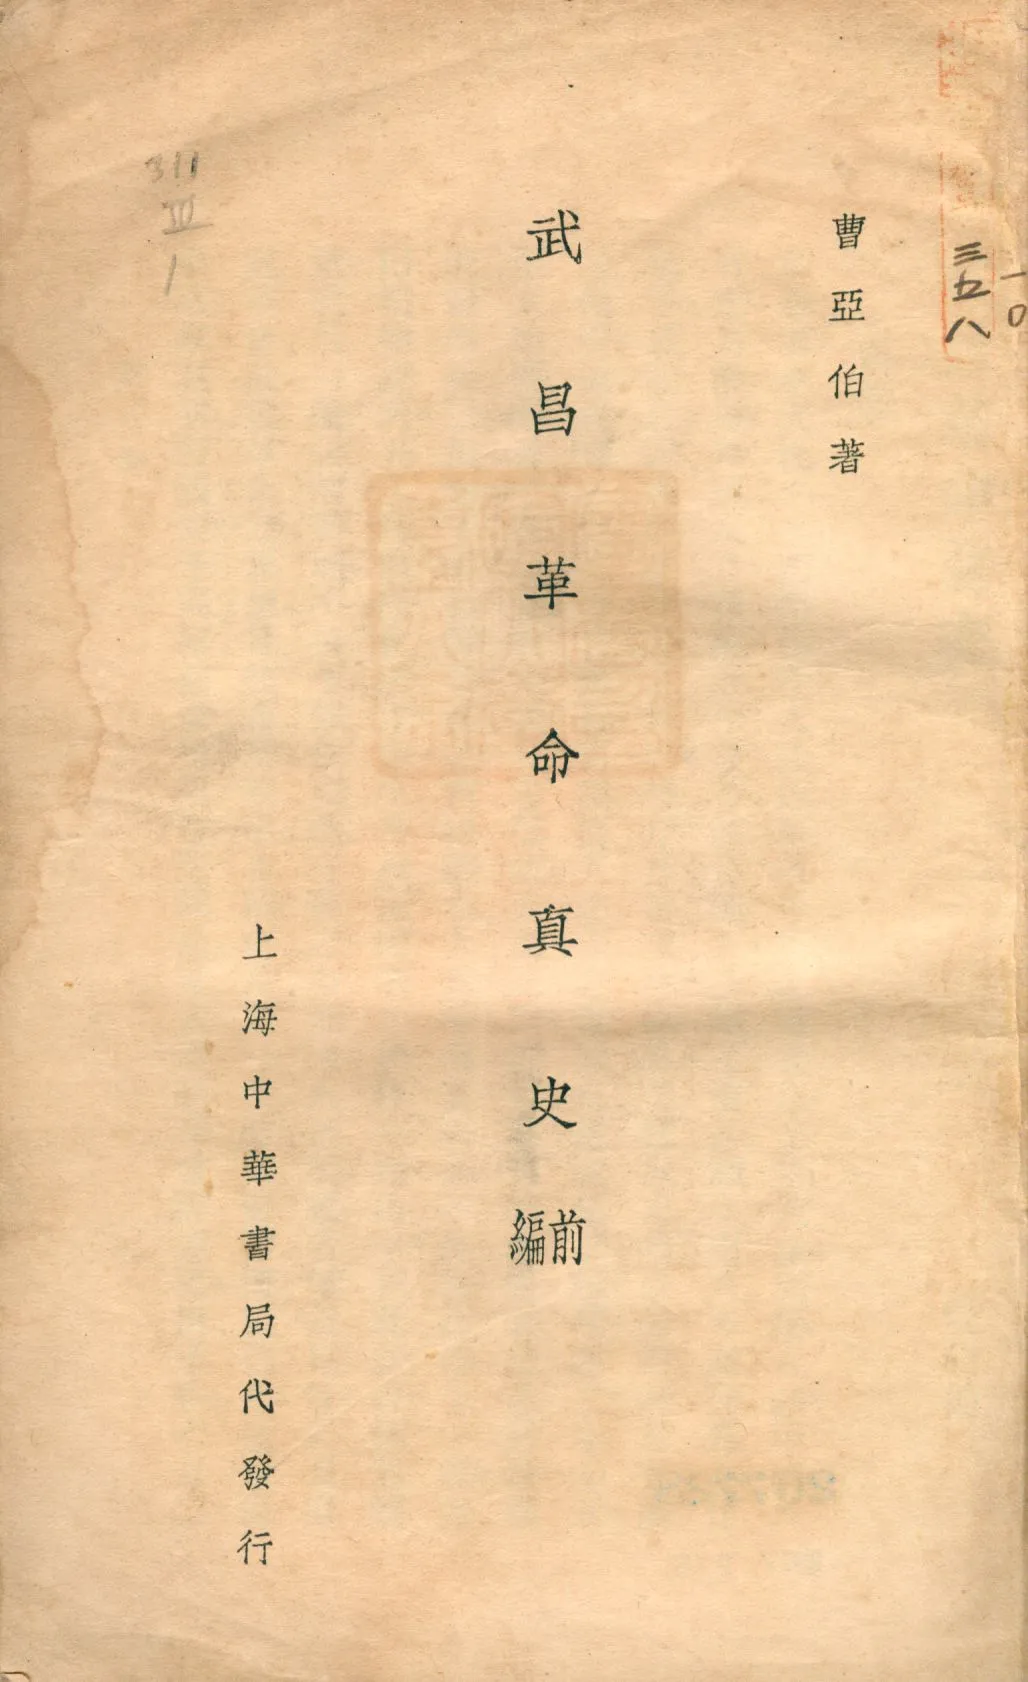 曹亞伯著
武昌革命真史前編
上海中華書局代發行
三五八
一〇
311
III
1